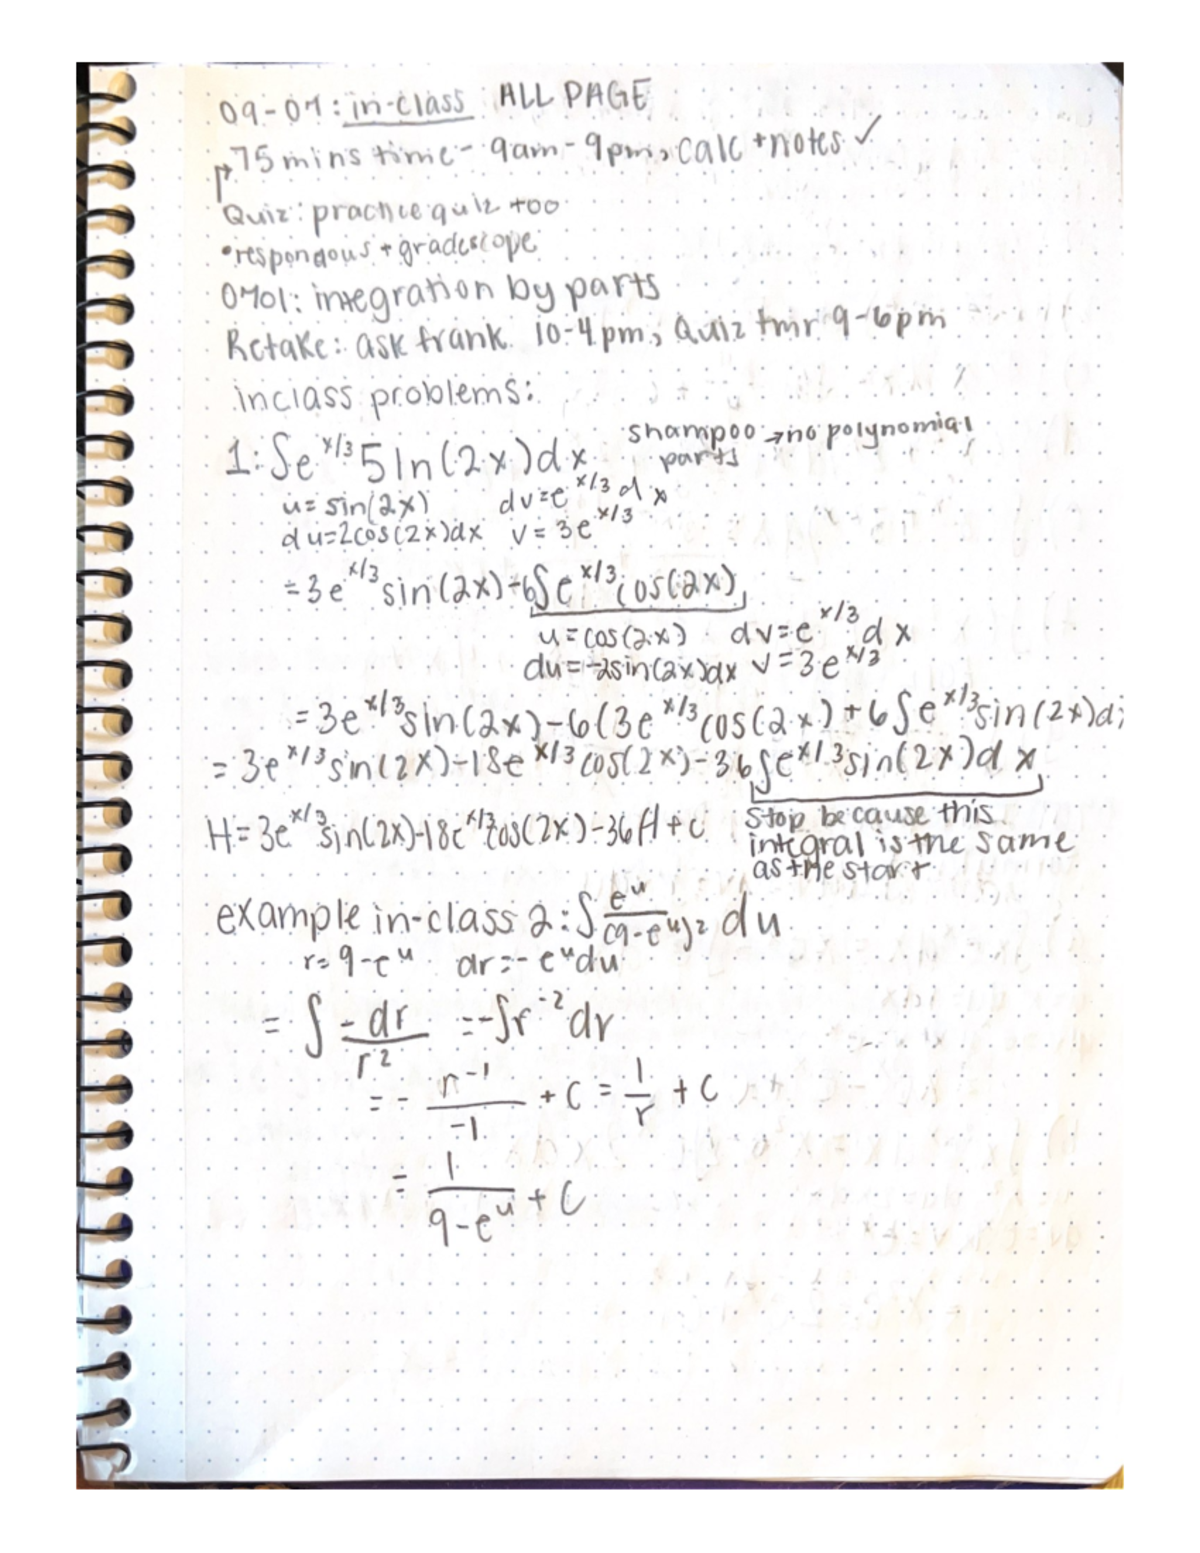 09-07: in-class ALL PAGE
75 mins time - 9am - 9pm, calc + notes ✓
Quiz: practice quiz too
•respondous + gradescope
0701: integration by parts
Retake: ask frank 10-4pm, Quiz tmr 9-6pm
inclass problems:
1: ∫e^x/3 sin(2x)dx shampoo → no polynomial parts
u = sin(2x) dv = e^x/3 dx
du=2cos(2x)dx v = 3e^x/3
= 3e^x/3 sin(2x) - 6∫e^x/3 cos(2x)
u = cos(2x) dv = e^x/3 dx
du = -2sin(2x)dx v = 3e^x/3
= 3e^x/3 sin(2x) - 6(3e^x/3 cos(2x) + 6∫e^x/3 sin(2x)d
= 3e^x/3 sin(2x) - 18e^x/3 cos(2x) - 36∫e^x/3 sin(2x)dx
H = 3e^x/3 sin(2x) - 18e^x/3 cos(2x) - 36H + C
stop because this
integral is the same
as the start
example in-class 2: ∫ e^u/(9-e^u)² du
r = 9-e^u dr = -e^u du
= ∫ -dr/r² = -∫r^-2 dr
= - r^-1/-1 + C = 1/r + C
= 1/(9-e^u) + C